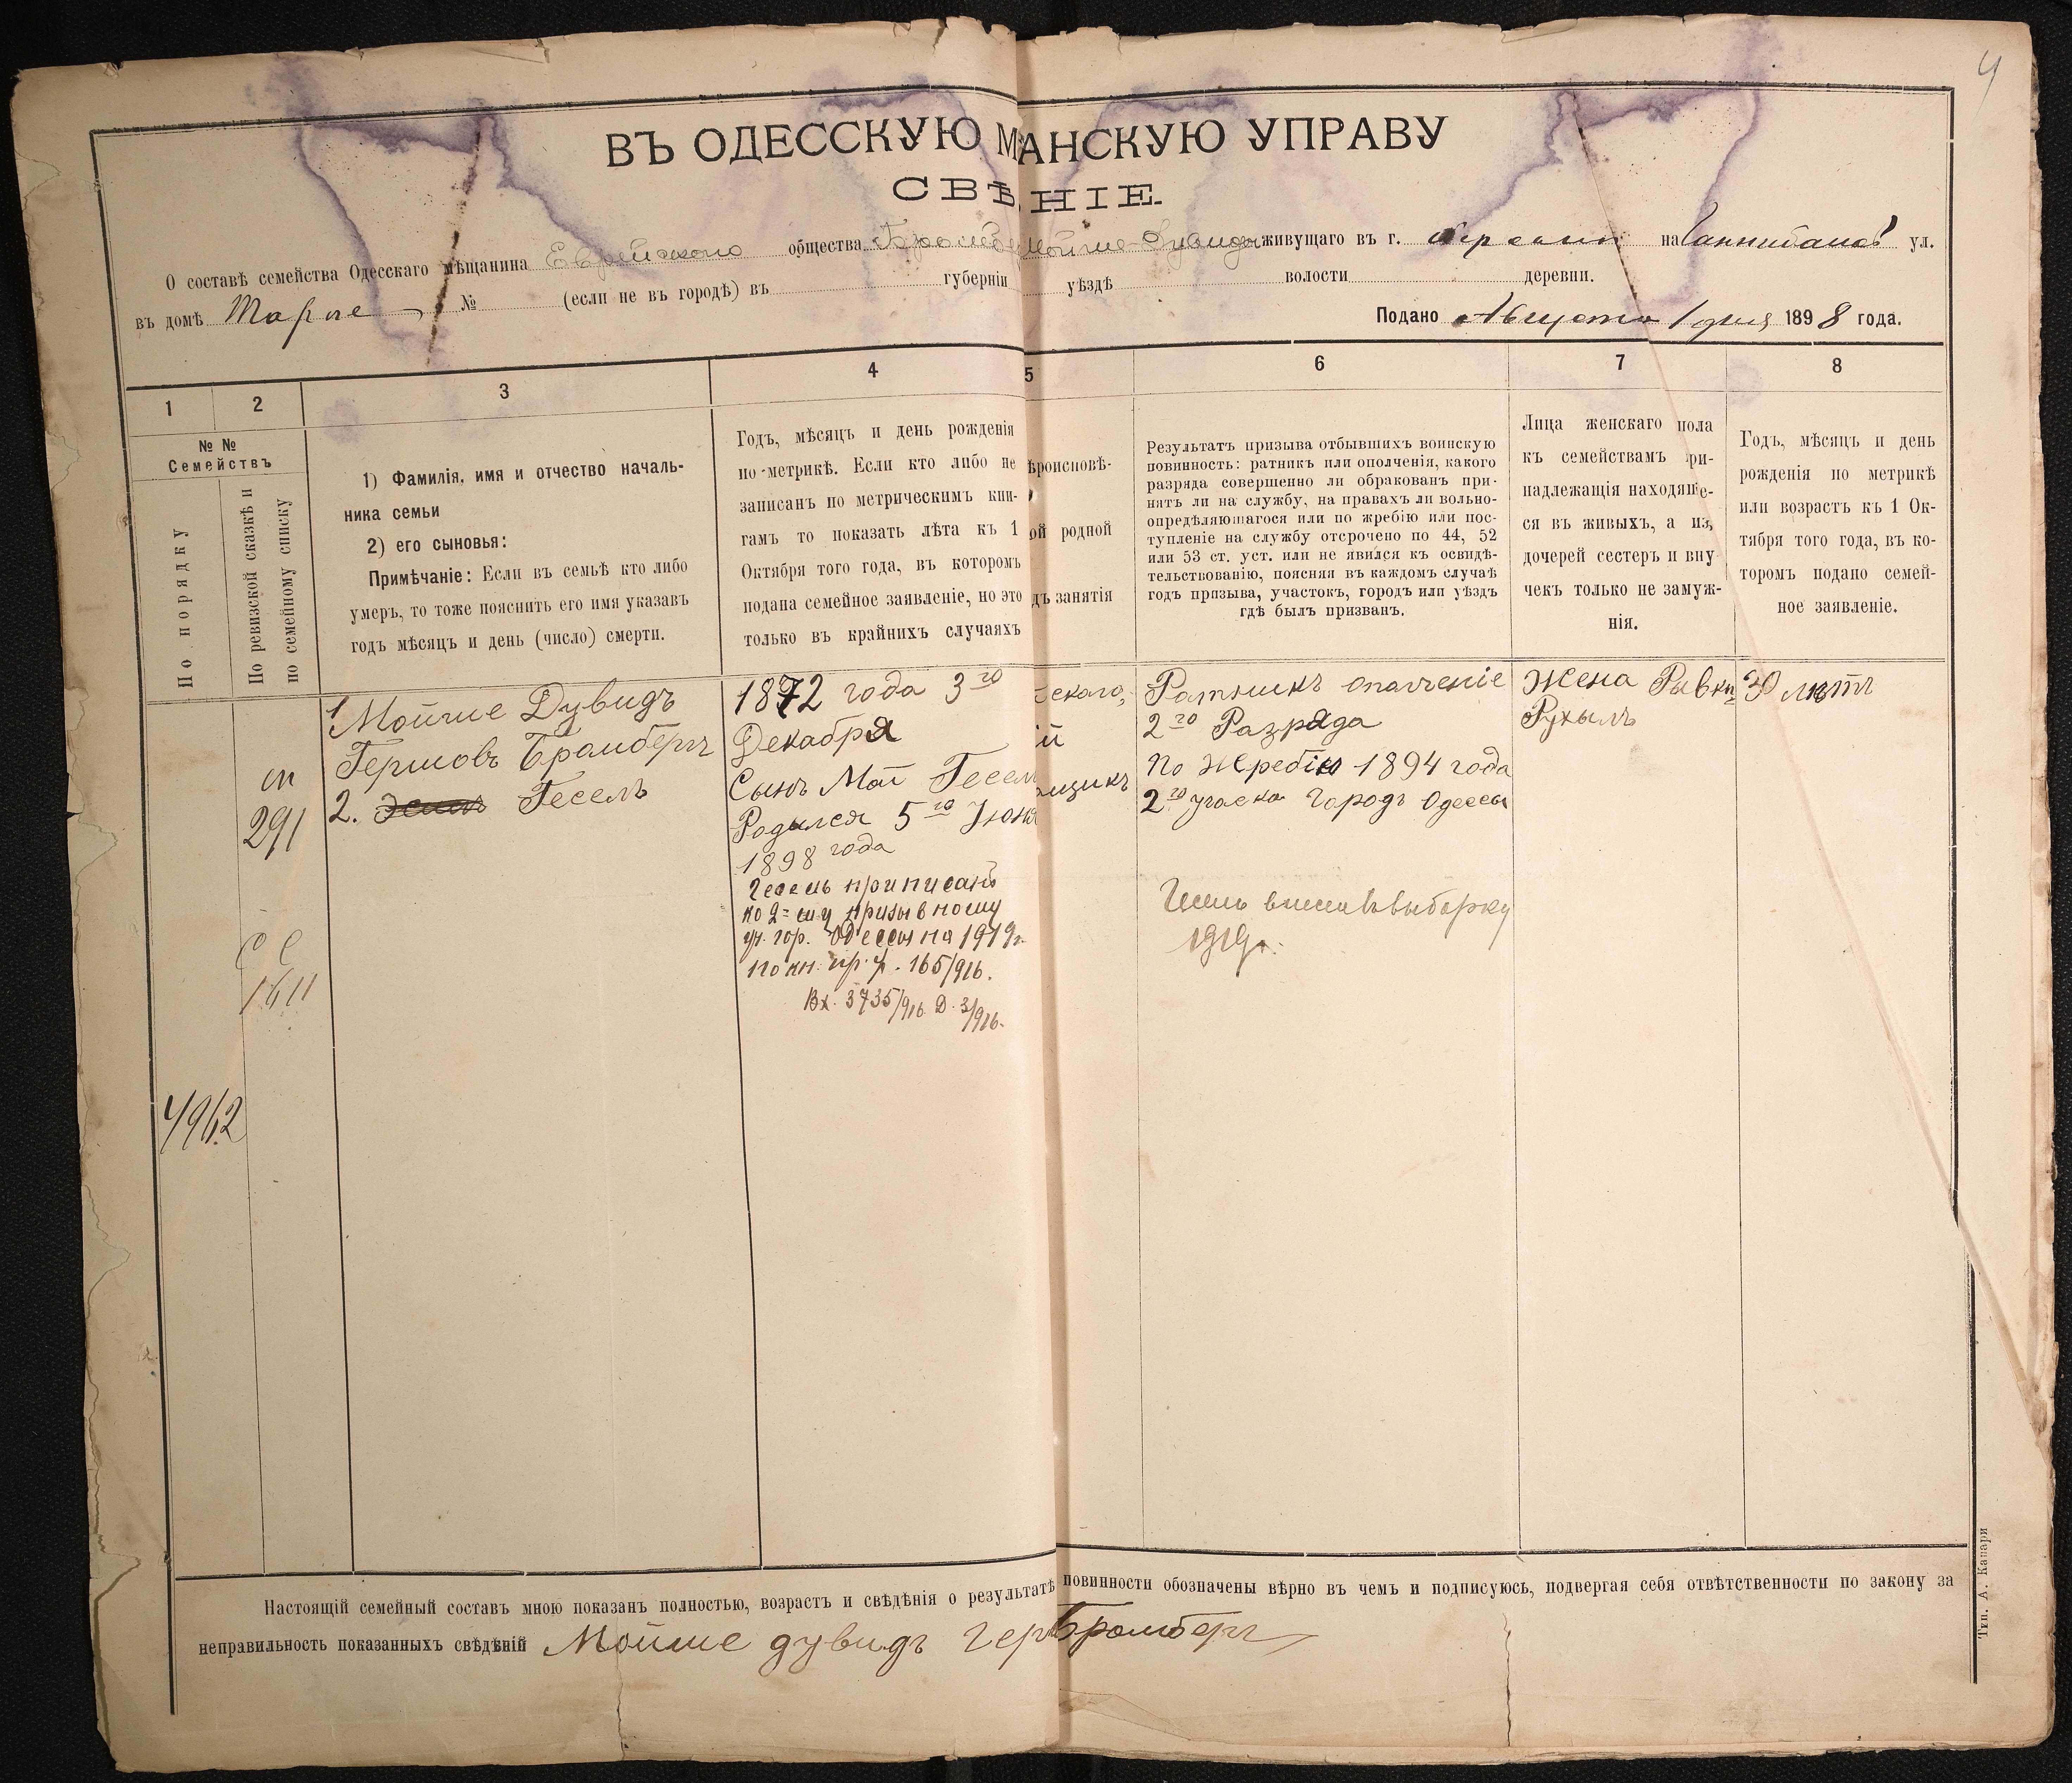 4
ВЪ ОДЕССКУЮ М АНСКУЮ УПРАВУ
СВѢ НІЕ.
О составѣ семейства Одесскаго мѣщанина Еврейского общества Мойше-Дувидъ живущаго въ г. на ул.
въ домѣ № (если не въ городѣ) въ губерніи уѣздѣ волости деревни.
Подано Августа 1 дня 1898 года.
1 2 3 4 5 6 7 8
№ №
Семействъ
По порядку
По ревизской сказкѣ и
по семейному списку
1) Фамилія, имя и отчество началь-
ника семьи
2) его сыновья:
Примѣчаніе: Если въ семьѣ кто либо
умеръ, то тоже пояснить его имя указавъ
годъ мѣсяцъ и день (число) смерти.
Годъ, мѣсяцъ и день рожденія
по метрикѣ. Если кто либо не
записанъ по метрическимъ кни-
гамъ то показать лѣта къ 1
Октября того года, въ которомъ
подана семейное заявленіе, но это
только въ крайнихъ случаяхъ
ѣроисповѣ-
ой родной
дъ занятія
Результатъ призыва отбывшихъ воинскую
повинность: ратникъ или ополченія, какого
разряда совершенно ли обракованъ при-
нятъ ли на службу, на правахъ ли вольно-
опредѣляющагося или по жребію или пос-
тупленіе на службу отсрочено по 44, 52
или 53 ст. уст. или не явился къ освидѣ-
тельствованію, поясняя въ каждомъ случаѣ
годъ призыва, участокъ, городъ или уѣздъ
гдѣ былъ призванъ.
Лица женскаго пола
къ семействамъ при-
надлежащія находяще-
ся въ живыхъ, а изъ
дочерей сестеръ и вну
чекъ только не замуж-
нія.
Годъ, мѣсяцъ и день
рожденія по метрикѣ
или возрастъ къ 1 Ок-
тября того года, въ ко-
торомъ подано семей-
ное заявленіе.
1 Мойше Дувидъ
Гершовъ Бромбергъ
2. Гесель
сп
291
С С
1611
4962
1872 года 3го
Декабря
Сынъ Мой Гесель
Родился 5го Іюня
1898 года
Гесель приписанъ
ко 2-му призывному
уч. гор. Одессы на 1919 г.
по кн. пр. у. 165/916.
Вх. 3735/916 Д. 3/916.
ского,
ій
щикъ
Ратникъ ополченіе
2го Разряда
По жребію 1894 года
2го учаска Городъ Одессы
Гесель внесенъ въ выборку
1919 г.
Жена Рывка
Рухыль
30 лѣтъ
Настоящій семейный составъ мною показанъ полностью, возрастъ и свѣдѣнія о результатѣ повинности обозначены вѣрно въ чемъ и подписуюсь, подвергая себя отвѣтственности по закону за
неправильность показанныхъ свѣдѣній Мойше дувидъ гер Бромбергъ
Тип. А. Капари